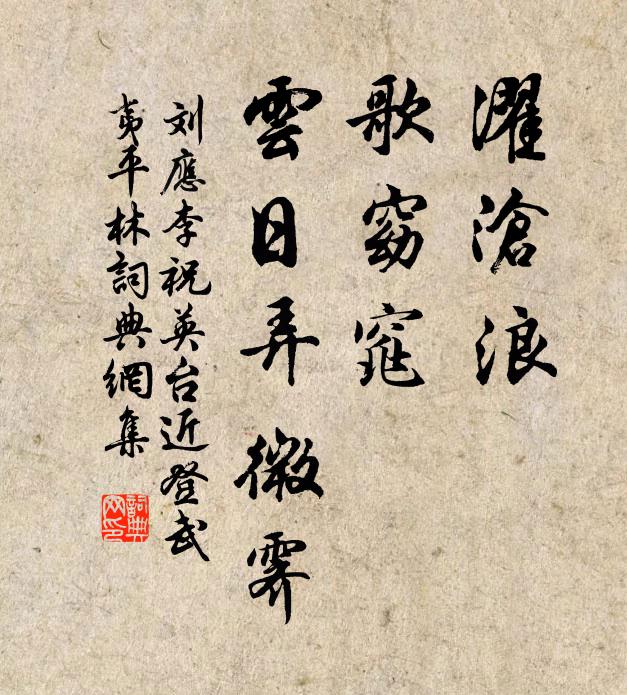 濯滄浪
歌窈窕
雲日弄微霽
刘應李祝英台近登武
夷平林詞典網集
詞典網印